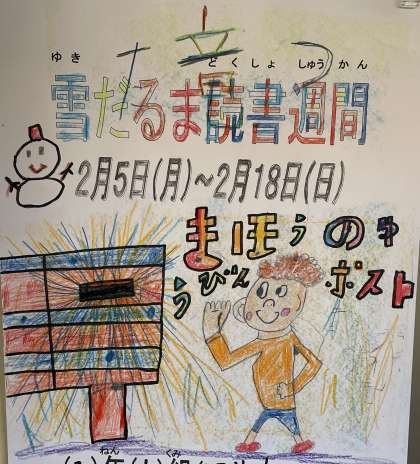 ゆき どくしょ しゅうかん
雪だるま読書週間
2月5日(月)~2月18日(日)
まほうのゆ
うびんポスト
ねん くみ